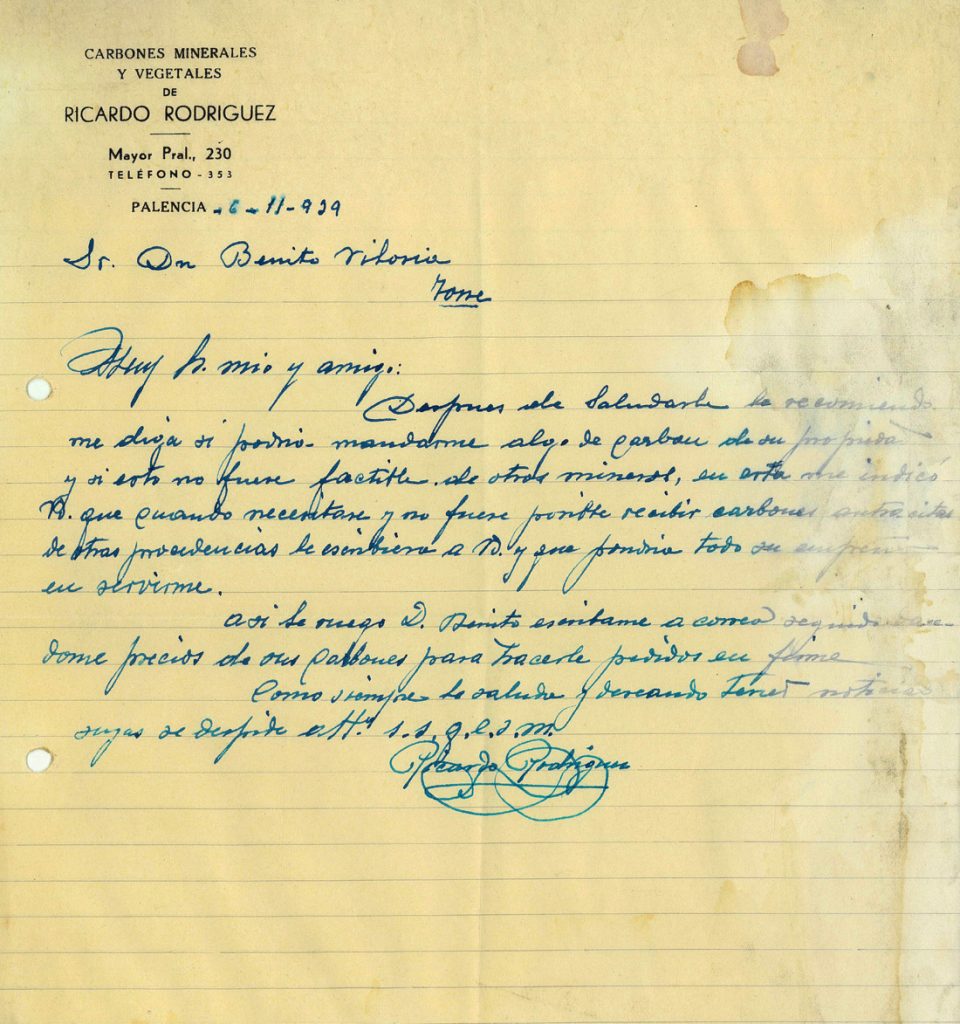 CARBONES MINERALES
Y VEGETALES
DE
RICARDO RODRIGUEZ
Mayor Pral., 230
TELÉFONO - 353
PALENCIA - 6 - 11 - 939
Sr. Dn Benito Vitoria
Torre
Muy Sr. mio y amigo:
Despues de Saludarle le recomiendo
me diga si podria mandarme algo de carbon de su propieda
y si esto no fuere factible de otros mineros, en esta me indicó
V. que cuando necesitare y no fuere posible recibir carbones antracitas
de otras procedencias le escribiera a V. y que pondria todo su empeño
en servirme.
Asi le ruego D. Benito escribame a correo seguido
dome precios de sus carbones para hacerle pedidos en firme
Como siempre le saluda y deseando tener noticias
suyas se despide s.s.q.e.s.m.
Ricardo Rodriguez